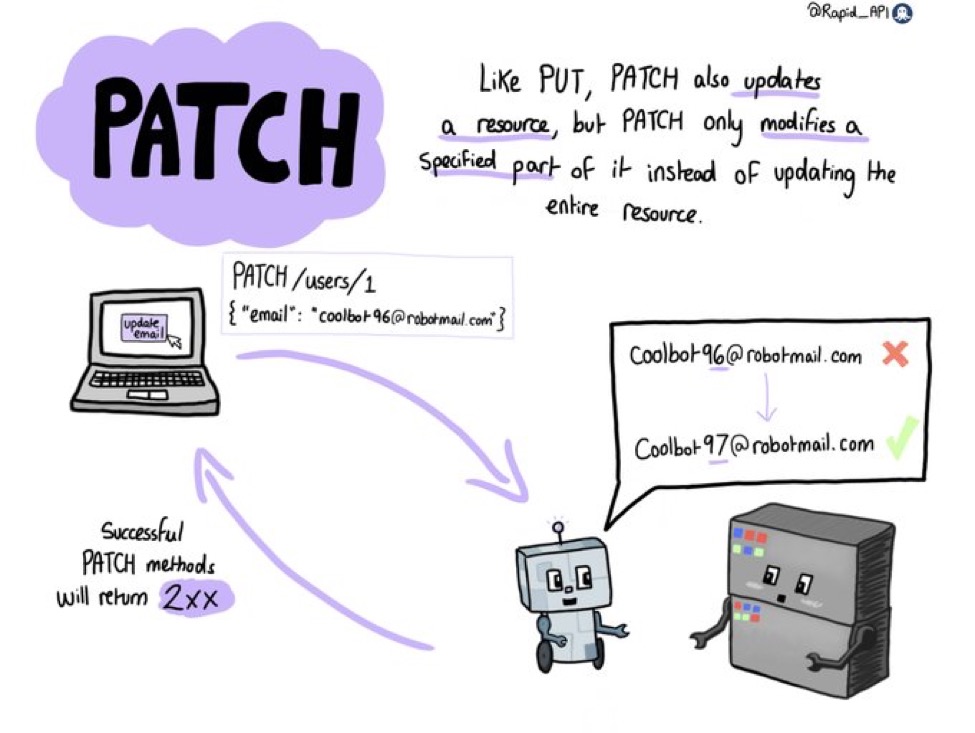 @Rapid_API
PATCH
Like PUT, PATCH also updates
a resource, but PATCH only modifies a
specified part of it instead of updating the
entire resource.
PATCH /users/1
{ "email": "coolbot96@robotmail.com" }
update
email
Coolbot96@robotmail.com
Coolbot97@robotmail.com
Successful
PATCH methods
will return 2xx